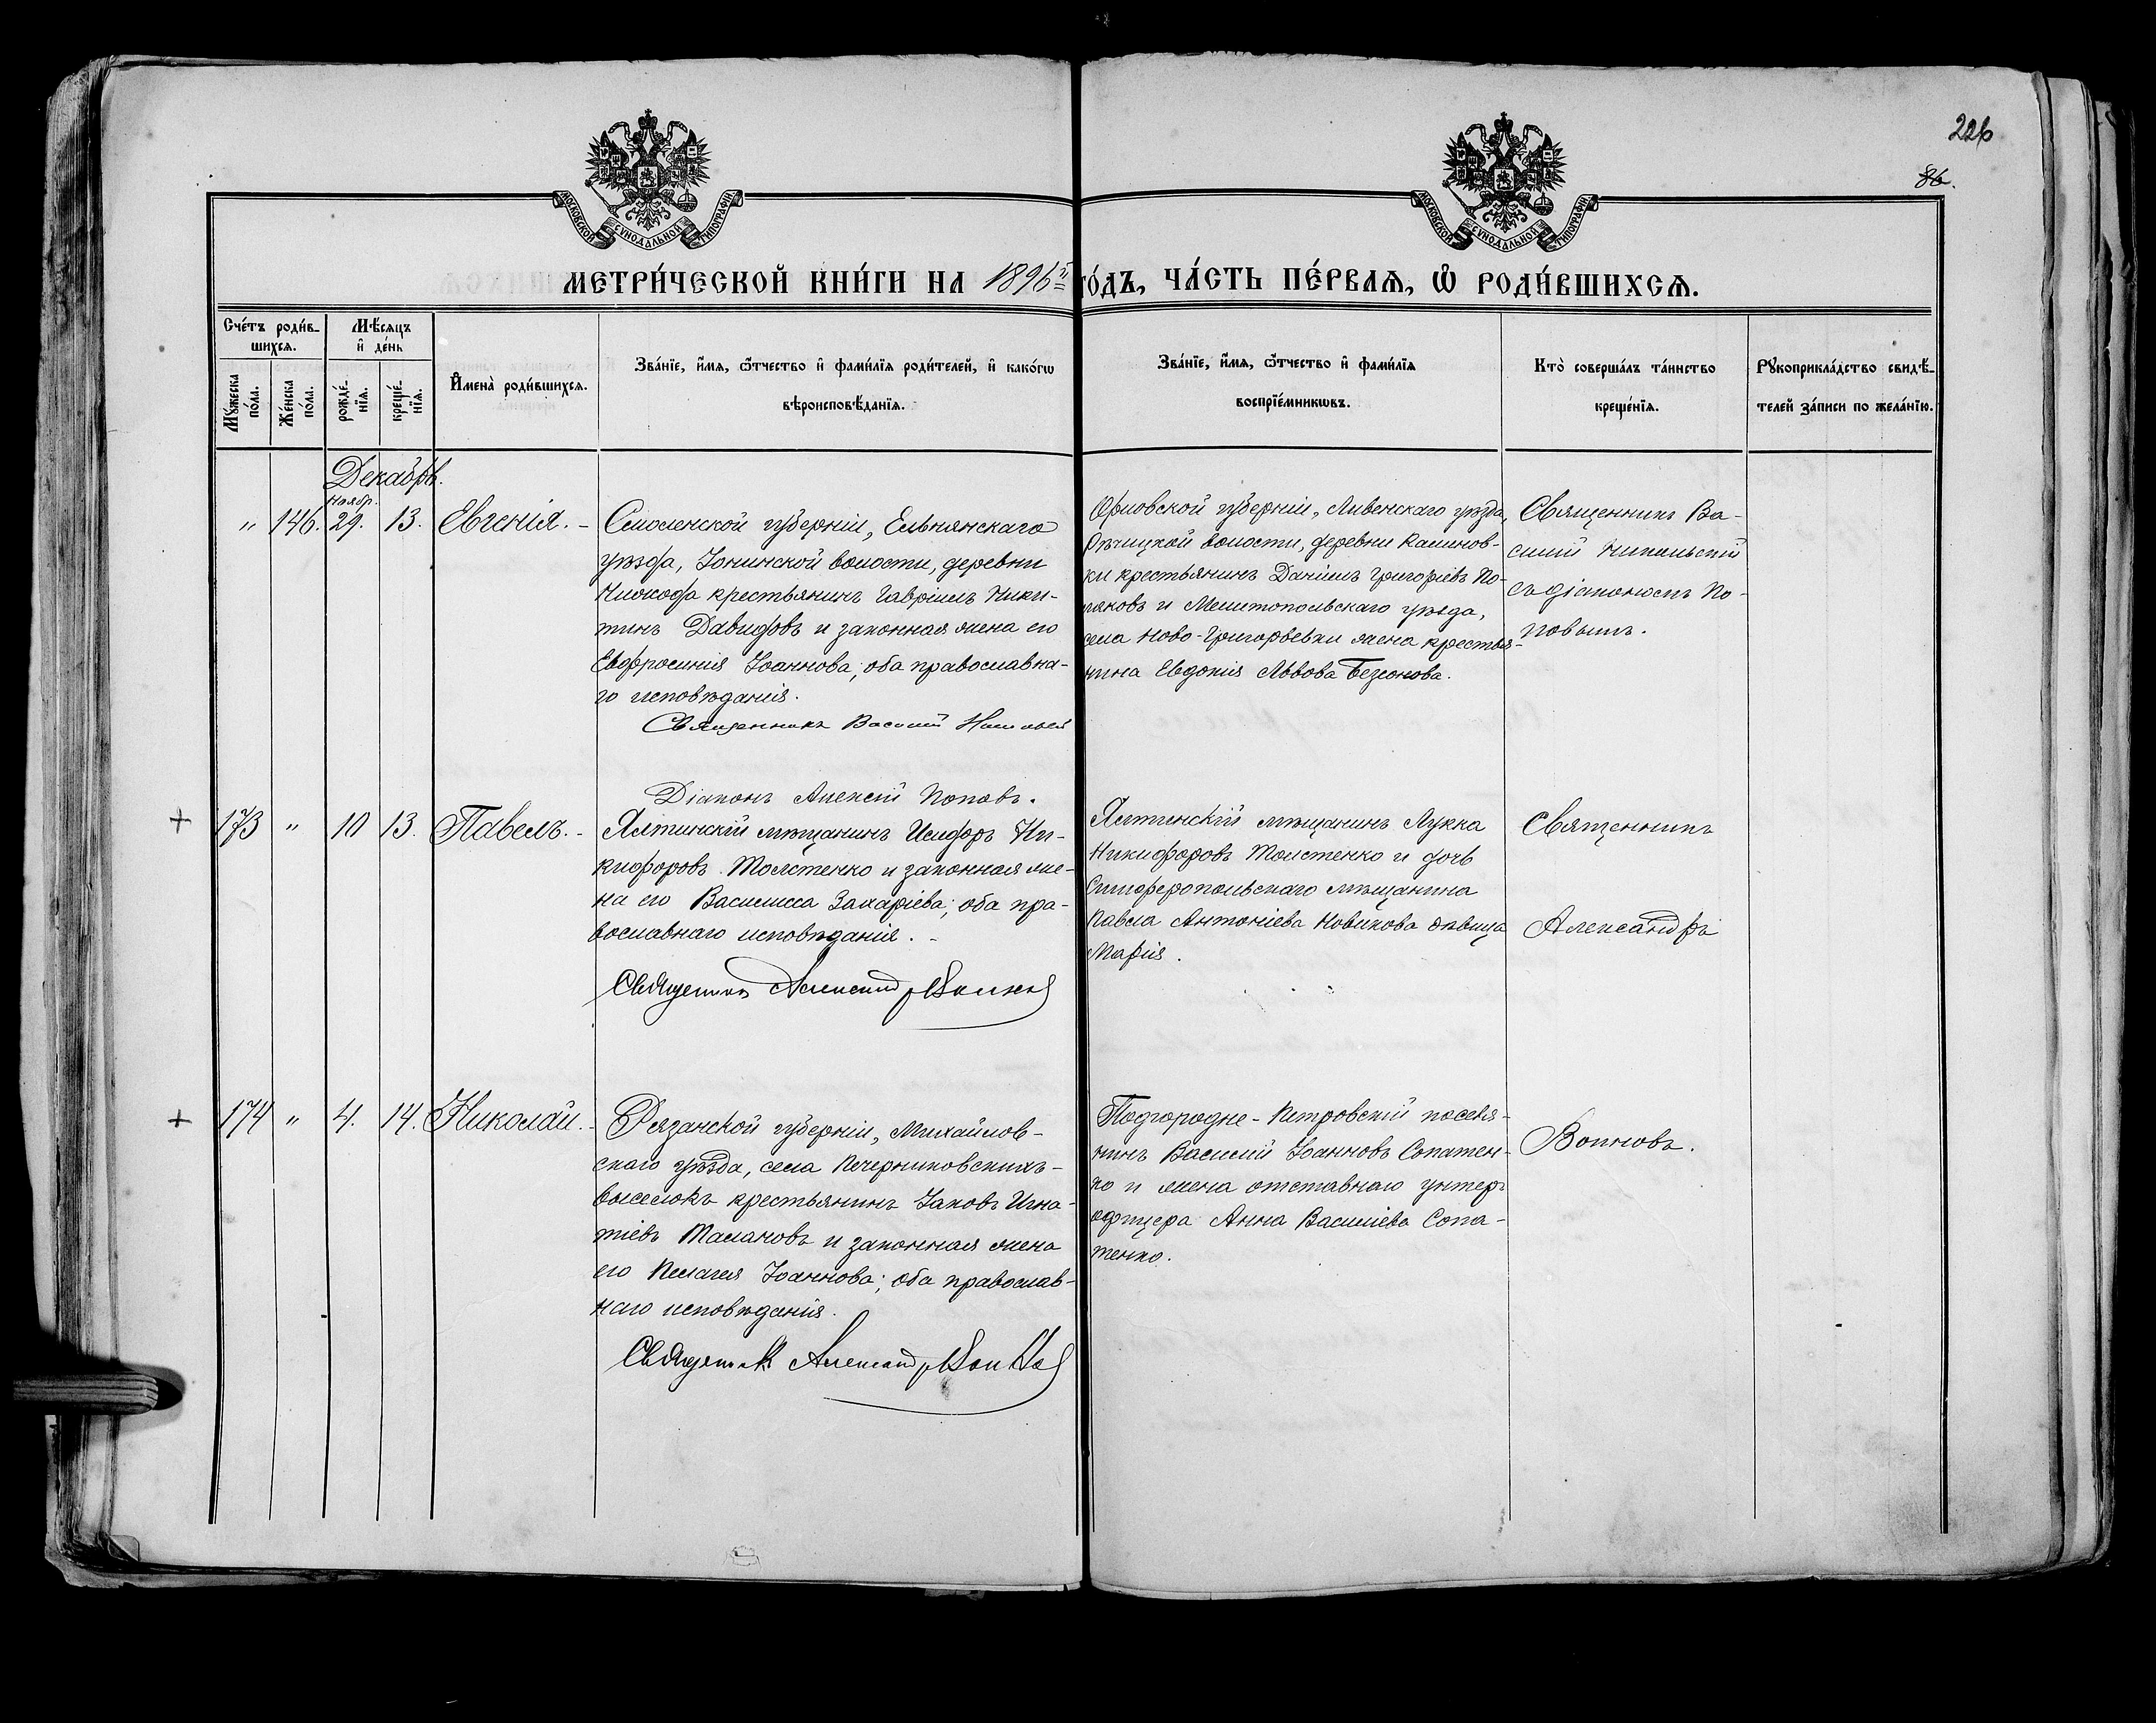 226
86.
МОСКОВСКОЙ СУНОДАЛЬНОЙ ТИПОГРАФІИ
МОСКОВСКОЙ СУНОДАЛЬНОЙ ТИПОГРАФІИ
МЕТРИ́ЧЕСКОЙ КНИ́ГИ НА 1896й ГО́ДЪ, ЧА́СТЬ ПЕ́РВАѦ, Ѡ РОДИ́ВШИХСѦ.
Сче́тъ роди́в-
шихсѧ.
Мѣ́сѧцъ
и҆ де́нь
Мꙋ́жеска
по́ла.
Же́нска
по́ла.
рожде́-
нїѧ.
креще́-
нїѧ.
И҆мена̀ роди́вшихсѧ.
Зва́нїе, и҆́мѧ, ѻ҆́тчество и҆ фами́лїѧ роди́телей, и҆ како́гѡ
вѣроисповѣ́данїѧ.
Зва́нїе, и҆́мѧ, ѻ҆́тчество и҆ фами́лїѧ
воспрїе́мникѡвъ.
Кто̀ соверша́лъ та́инство
креще́нїѧ.
Рꙋкоприкла́дство свидѣ́-
телей за́писи по жела́нїю.
Декабрь.
Ноябр.
" 146. 29. 13. Евгенія.
Смоленской губерніи, Ельнянскаго
уѣзда, Іонинской волости, деревни
крестьянинъ Гавріилъ Ники-
тинъ Давидовъ и законная жена его
Евфросинія Іоаннова; оба православна-
го исповѣданія.
Священникъ Василій
Діаконъ Алексій Поповъ.
Орловской губерніи, Ливенскаго уѣзда,
Рѣчицкой волости, деревни Калинов-
ки крестьянинъ Даніилъ Григоріевъ По-
ляковъ и Мелитопольскаго уѣзда,
села Ново-Григорьевки жена крестья-
нина Евдокія Львова Безсонова.
Священникъ Ва-
силій Никольскій
съ діакономъ По-
повымъ.
+ 173 " 10 13. Павелъ.
Ялтинскій мѣщанинъ Исидоръ Ни-
кифоровъ Толстенко и законная же-
на его Василисса Захаріева; оба пра-
вославнаго исповѣданія.
Священникъ Александръ
Ялтинскій мѣщанинъ Лукка
Никифоровъ Толстенко и дочь
Симферопольскаго мѣщанина
Павла Антоніева Новикова дѣвица
Марія.
Священникъ
Александръ
+ 174 " 4. 14. Николай.
Рязанской губерніи, Михайлов-
скаго уѣзда, села Печерниковскихъ-
выселокъ крестьянинъ Іаковъ Игна-
тіевъ Талановъ и законная жена
его Пелагея Іоаннова; оба православ-
наго исповѣданія.
Священникъ Александръ
Подгородне-Петровскій поселя-
нинъ Василій Іоанновъ Сопатен-
ко и жена отставнаго унтеръ
офицера Анна Василіева Сопа-
тенко.